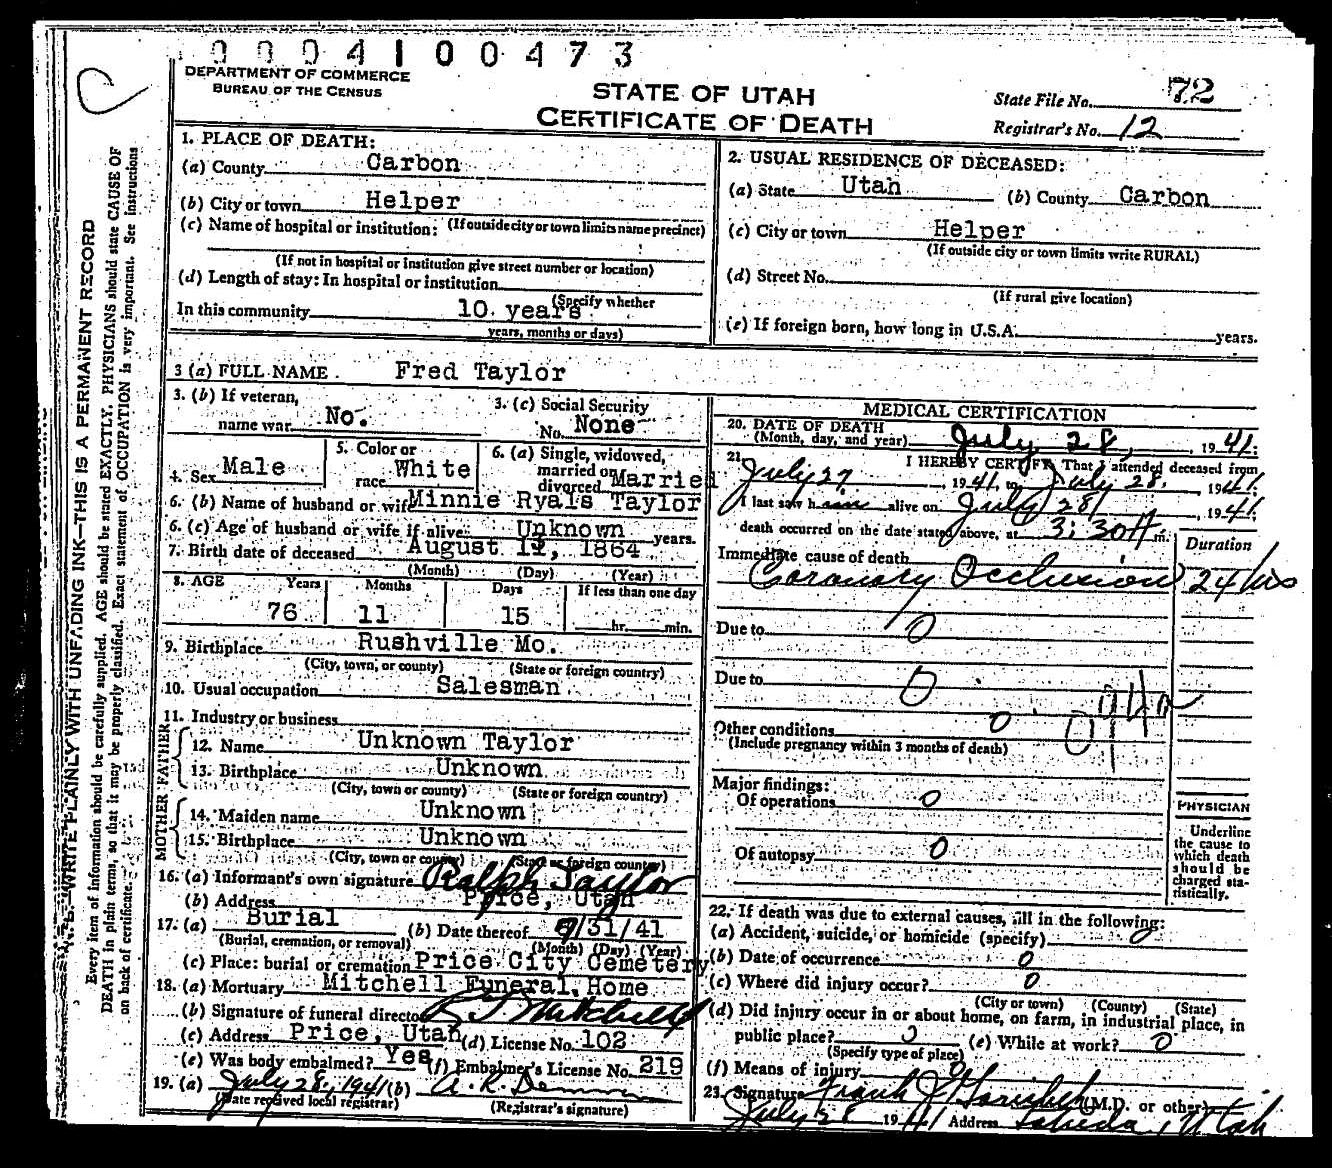 0 0 0 4 1 0 0 4 7 3
DEPARTMENT OF COMMERCE
BUREAU OF THE CENSUS
STATE OF UTAH
CERTIFICATE OF DEATH
State File No. 72
Registrar's No. 12
N. B. WRITE PLAINLY WITH UNFADING INK—THIS IS A PERMANENT RECORD
Every item of information should be carefully supplied. AGE should be stated EXACTLY. PHYSICIANS should state CAUSE OF
DEATH in plain terms, so that it may be properly classified. Exact statement of OCCUPATION is very important. See instructions
on back of certificate.
1. PLACE OF DEATH:
(a) County Carbon
(b) City or town Helper
(c) Name of hospital or institution: (If outside city or town limits name precinct)
(If not in hospital or institution give street number or location)
(d) Length of stay: In hospital or institution
(Specify whether
In this community 10 years
years, months or days)
2. USUAL RESIDENCE OF DECEASED:
(a) State Utah (b) County Carbon
(c) City or town Helper
(If outside city or town limits write RURAL)
(d) Street No.
(If rural give location)
(e) If foreign born, how long in U.S.A. years.
3 (a) FULL NAME Fred Taylor
3. (b) If veteran,
name war No.
3. (c) Social Security
No. None
4. Sex Male
5. Color or
race White
6. (a) Single, widowed,
married or
divorced Married
6. (b) Name of husband or wife Minnie Ryals Taylor
6. (c) Age of husband or wife if alive Unknown years.
7. Birth date of deceased August 13, 1864
(Month) (Day) (Year)
8. AGE Years Months Days If less than one day
76 11 15 hr. min.
9. Birthplace Rushville Mo.
(City, town, or county) (State or foreign country)
10. Usual occupation Salesman
11. Industry or business
FATHER
12. Name Unknown Taylor
13. Birthplace Unknown
(City, town or county) (State or foreign country)
MOTHER
14. Maiden name Unknown
15. Birthplace Unknown
(City, town or county) (State or foreign country)
16. (a) Informant's own signature Ralph Taylor
(b) Address Price, Utah
17. (a) Burial (b) Date thereof 7/31/41
(Burial, cremation, or removal) (Month) (Day) (Year)
(c) Place: burial or cremation Price City Cemetery
18. (a) Mortuary Mitchell Funeral Home
(b) Signature of funeral director Mitchell
(c) Address Price, Utah (d) License No. 102
(e) Was body embalmed? Yes (f) Embalmer's License No. 219
19. (a) July 28, 1941 (b) A. R.
(Date received local registrar) (Registrar's signature)
MEDICAL CERTIFICATION
20. DATE OF DEATH
(Month, day, and year) July 28, 1941.
21. I HEREBY CERTIFY, That I attended deceased from
July 27, 1941, to July 28, 1941
I last saw him alive on July 28, 1941.
death occurred on the date stated above, at 3:30 A m.
Duration
Immediate cause of death
Coronary Occlusion 24 hrs
Due to 0
Due to 0
Other conditions 0
(Include pregnancy within 3 months of death)
Major findings:
Of operations 0
Of autopsy 0
PHYSICIAN
Underline
the cause to
which death
should be
charged sta-
tistically.
22. If death was due to external causes, fill in the following:
(a) Accident, suicide, or homicide (specify) 0
(b) Date of occurrence 0
(c) Where did injury occur? 0
(City or town) (County) (State)
(d) Did injury occur in or about home, on farm, in industrial place, in
public place? 0 (e) While at work? 0
(Specify type of place)
(f) Means of injury 0
23. Signature Frank J. (M.D. or other)
July 28 1941 Address Utah